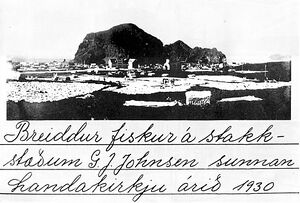 Breiddur fiskur á stakk-
stæðum G J Johnsen sunnan
Landakirkju árið 1930